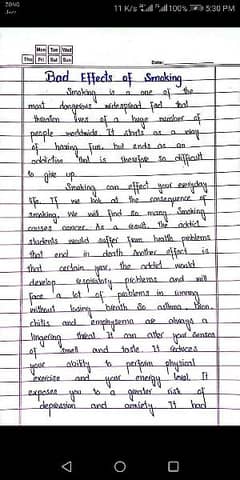 11 K/s 100% 5:30 PM
Mon Tue Wed
Thu Fri Sat Sun
Date:
Bad Effects of Smoking
Smoking is a one of the
most dangerous widespread fad that
threaten lives of a huge number of
people worldwide. It starts as a way
of having fun, but ends as an
addiction that is therefore so difficult
to give up.
Smoking can effect your everyday
life. If we look at the consequence of
smoking, We will find so many Smoking
causes cancer. As a result, the addict
students would suffer from health problems
that end in death Another effect is
that certain year, the addict would
develop respiratory problems and will
face a lot of problems in running
without losing breath so asthma, bron-
chitis and emphysema are always a
lingering threat It can alter your senses
of smell and taste. It reduces
your ability to perform physical
exercise and your energy level. It
exposes you to a greater risk of
depression and anxiety It had